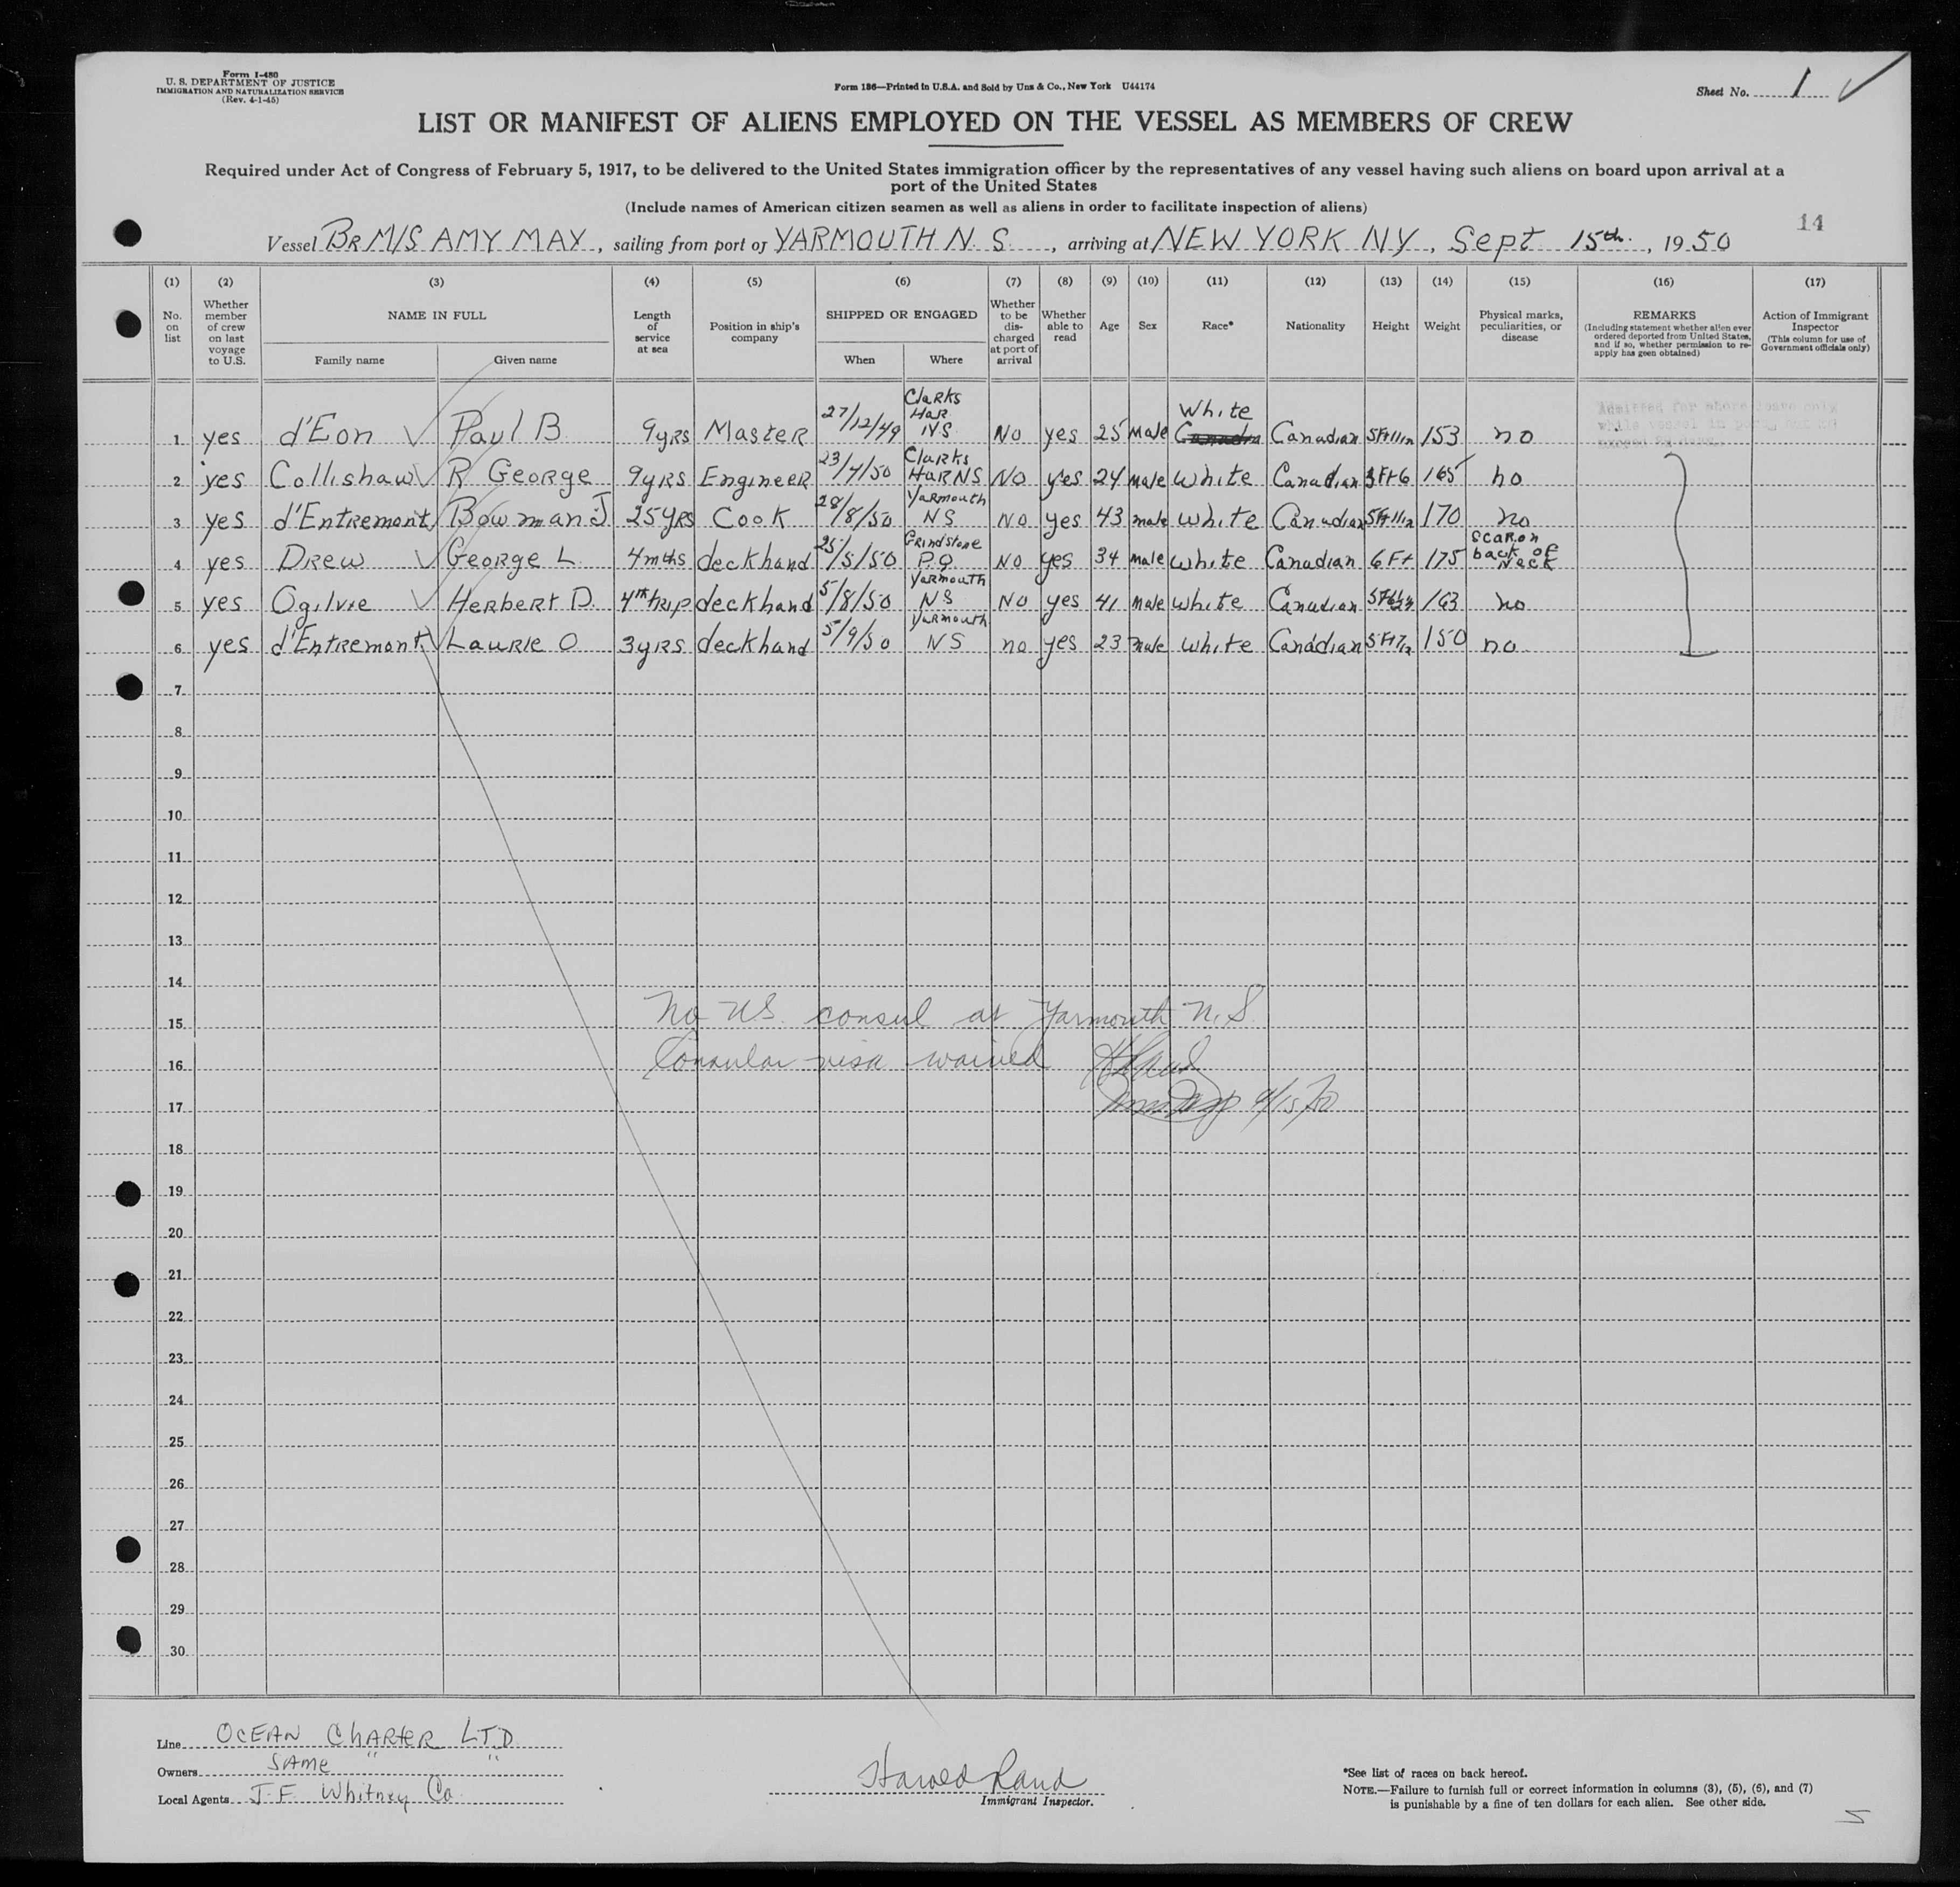 Form I-480
U. S. DEPARTMENT OF JUSTICE
IMMIGRATION AND NATURALIZATION SERVICE
(Rev. 4-1-45)
Form 186—Printed in U.S.A. and Sold by Unz & Co., New York U44174
Sheet No. 1
LIST OR MANIFEST OF ALIENS EMPLOYED ON THE VESSEL AS MEMBERS OF CREW
Required under Act of Congress of February 5, 1917, to be delivered to the United States immigration officer by the representatives of any vessel having such aliens on board upon arrival at a
port of the United States
(Include names of American citizen seamen as well as aliens in order to facilitate inspection of aliens)
14
Vessel BR M/S AMY MAY, sailing from port of YARMOUTH N. S., arriving at NEW YORK NY, Sept 15th, 1950
(1) (2) (3) (4) (5) (6) (7) (8) (9) (10) (11) (12) (13) (14) (15) (16) (17)
No. on list
Whether member of crew on last voyage to U.S.
NAME IN FULL
Family name
Given name
Length of service at sea
Position in ship's company
SHIPPED OR ENGAGED
When
Where
Whether to be dis-charged at port of arrival
Whether able to read
Age
Sex
Race*
Nationality
Height
Weight
Physical marks, peculiarities, or disease
REMARKS
(Including statement whether alien ever ordered deported from United States, and if so, whether permission to re-apply has geen obtained)
Action of Immigrant Inspector
(This column for use of Government officials only)
Admitted for shore leave only
while vessel in port, not to
exceed 29 days.
1 yes d'Eon Paul B 9yrs Master 27/12/49 Clarks Har NS No yes 25 Male White Canadian 5Ft11in 153 no
2 yes Collishaw R George 9yrs Engineer 23/7/50 Clarks Har NS No yes 24 male White Canadian 5Ft6 165 no
3 yes d'Entremont Bowman J 25yrs Cook 28/8/50 Yarmouth NS No yes 43 male white Canadian 170 no
4 yes Drew George L 4mths deckhand 25/5/50 Grindstone P.Q No yes 34 male white Canadian 6Ft 175 scar on back of Neck
5 yes Ogilvie Herbert D. 4th trip deckhand 5/8/50 Yarmouth NS No yes 41 male white Canadian 163 no
6 yes d'Entremont Laurie O 3yrs deckhand 5/9/50 Yarmouth NS no yes 23 male white Canadian 150 no
7
8
9
10
11
12
13
14
No US. consul at Yarmouth N. S.
15
Consular visa waived HRand
16
17 9/15/50
18
19
20
21
22
23
24
25
26
27
28
29
30
Line OCEAN CHARTER LTD
Owners SAME " "
Local Agents J. F. Whitney Co.
Harold Rand
Immigrant Inspector.
*See list of races on back hereof.
NOTE.—Failure to furnish full or correct information in columns (3), (5), (6), and (7)
is punishable by a fine of ten dollars for each alien. See other side.